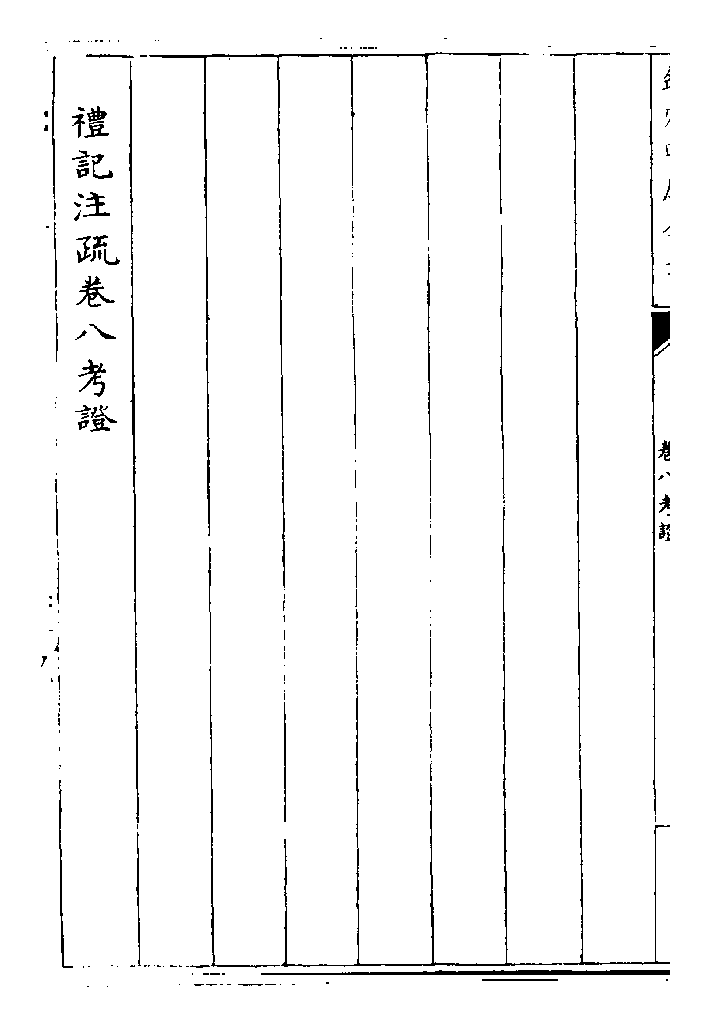 卷八考證
禮記注疏卷八考證